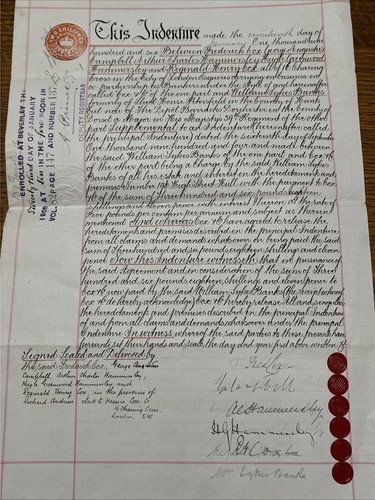 This Indenture made the nineteenth day of
January One thousand nine
hundred and six Between Frederick Cox George Augustus
Campbell Arthur Charles Hammersley Hugh Greenwood
Hammersley and Reginald Henry Cox all of 16 Charing
Cross in the City of London Esquires carrying on business in
co-partnership as Bankers under the style of and hereinafter
called Cox &Co of the one part and William Sykes Banks
formerly of Heath House Petersfield in the County of Hants
but now of The Depôt Barracks Dorchester in the County of
Dorset a Major in His Majestys 39th Regiment of the other
part Supplemental to an Indenture (hereinafter called
the principal Indenture) dated the sixteenth day of
One thousand nine hundred and four and made between
the said William Sykes Banks of the one part and Cox &Co
of the other part being a charge by the said William Sykes
Banks of all his estate and interest in the hereditaments and
premises Number 196 High Street Hull with the payment to Cox
&Co of the sum of Three hundred and six pounds eighteen
shillings and eleven pence with interest thereon at the rate of
Five pounds per centum per annum and subject as therein
mentioned And whereas Cox &Co have agreed to release the
hereditaments and premises described in the principal Indenture
from all claims and demands thereon on being paid the said
sum of Three hundred and six pounds eighteen shillings and eleven
pence Now this Indenture witnesseth that in pursuance of
the said Agreement and in consideration of the sum of Three
hundred and six pounds eighteen shillings and eleven pence to
Cox &Co now paid by the said William Sykes Banks (the receipt whereof
Cox &Co do hereby acknowledge) Cox &Co hereby release All and singular
the hereditaments and premises described in the principal Indenture
of and from all claims and demands whatsoever under the principal
Indenture In witness whereof the said parties to these presents have
hereunto set their hands and seals the day and year first above written
Signed Sealed and Delivered by
the said Frederick Cox, George Augustus
Campbell Arthur Charles Hammersley,
Hugh Greenwood Hammersley and
Reginald Henry Cox, in the presence of
Richard Andrews clerk to Messrs Cox &Co
16 Charing Cross,
London S.W.
Fred Cox
G A Campbell
A C Hammersley
H G Hammersley
R H Cox
Wm Sykes Banks
ENROLLED AT BEVERLEY THE
Twenty third DAY OF JANUARY
1906 AT Ten IN THE fore NOON
VOL 82 PAGE 117 AND NUMBER 187
DEPUTY REGISTRAR